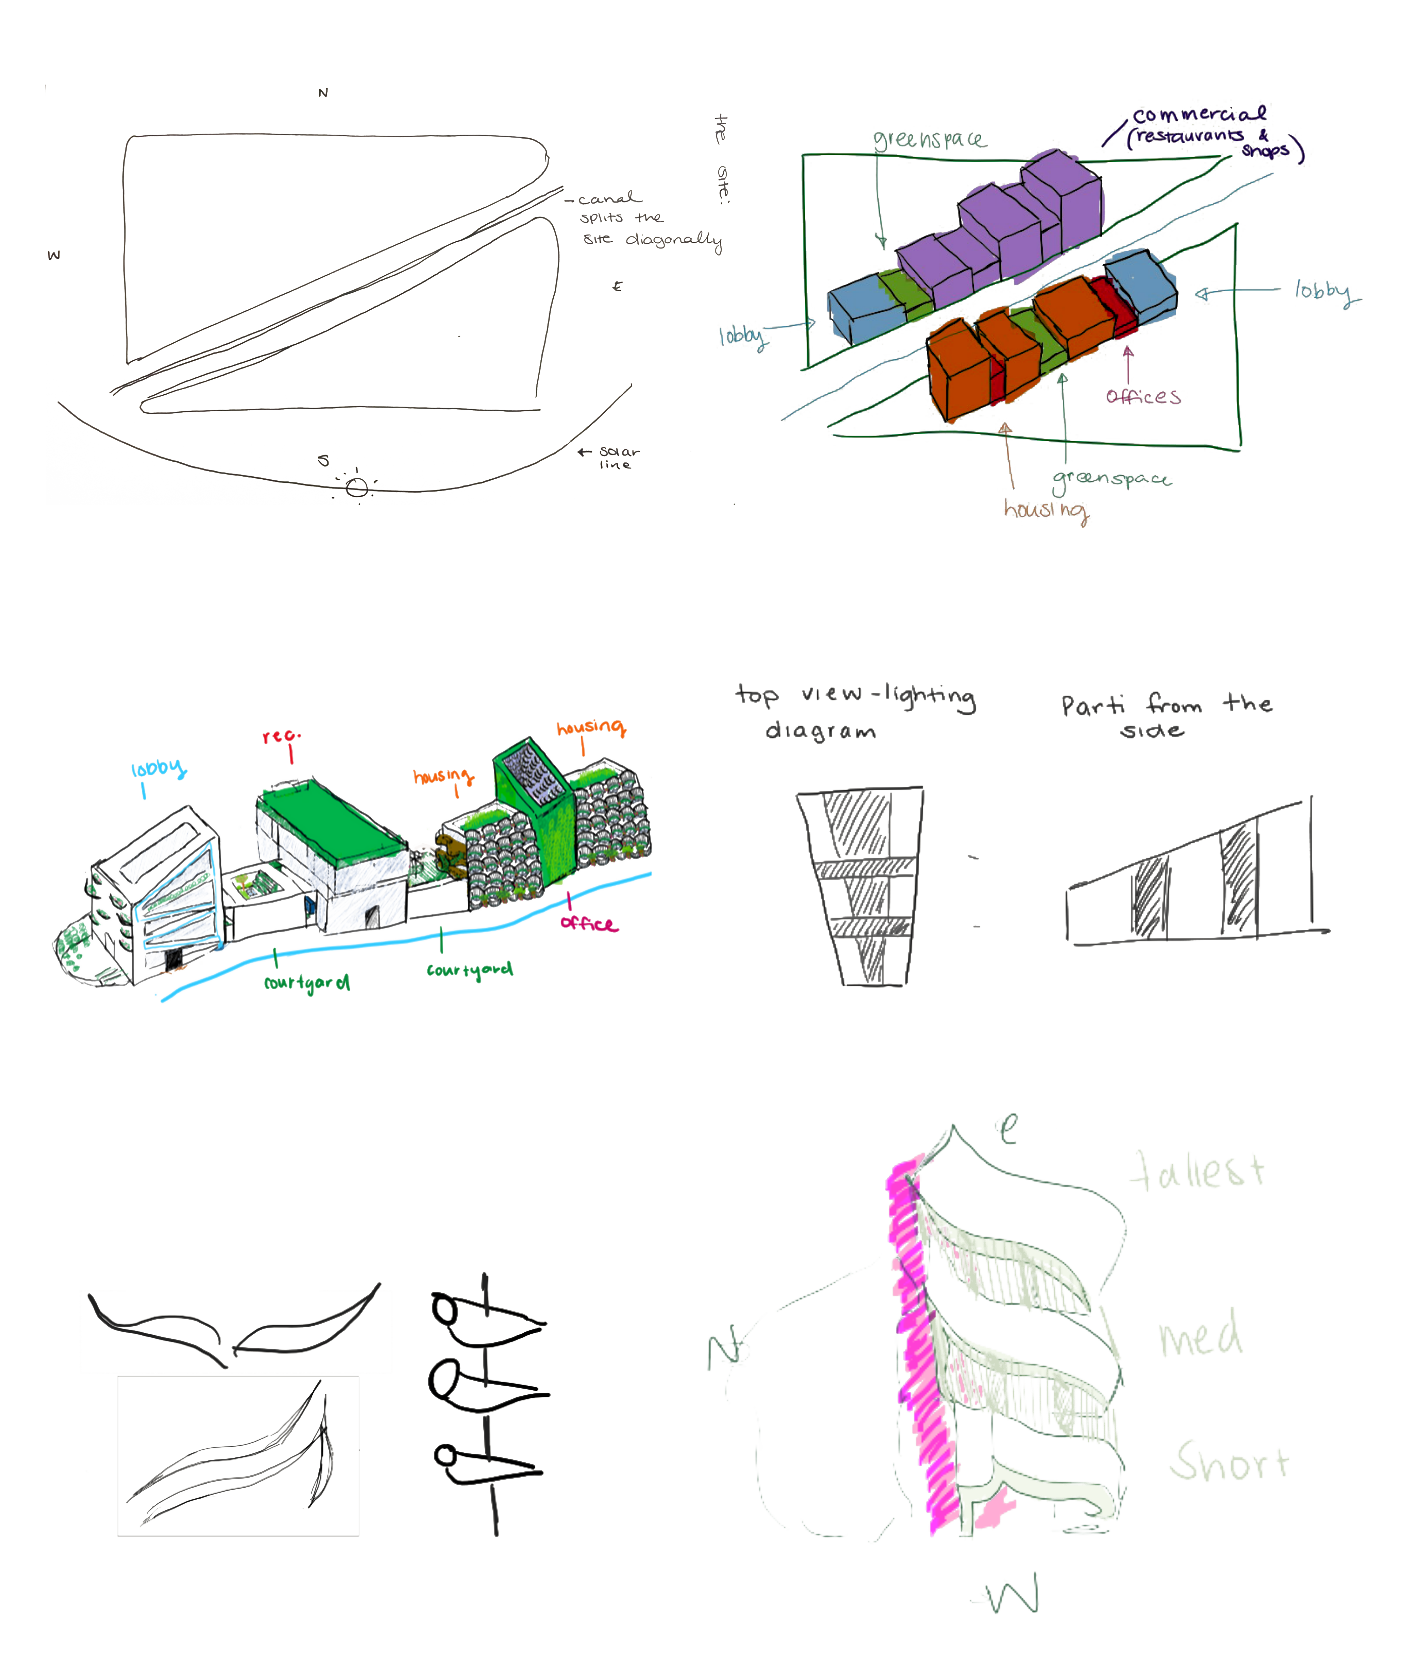 N
the site:
canal
splits the
site diagonally
W
E
S
← solar
line
greenspace
commercial
(restaurants &
shops)
lobby
lobby
offices
greenspace
housing
lobby
rec.
housing
housing
office
courtyard
courtyard
top view - lighting
diagram
Parti from the
side
e
tallest
N
med
short
W